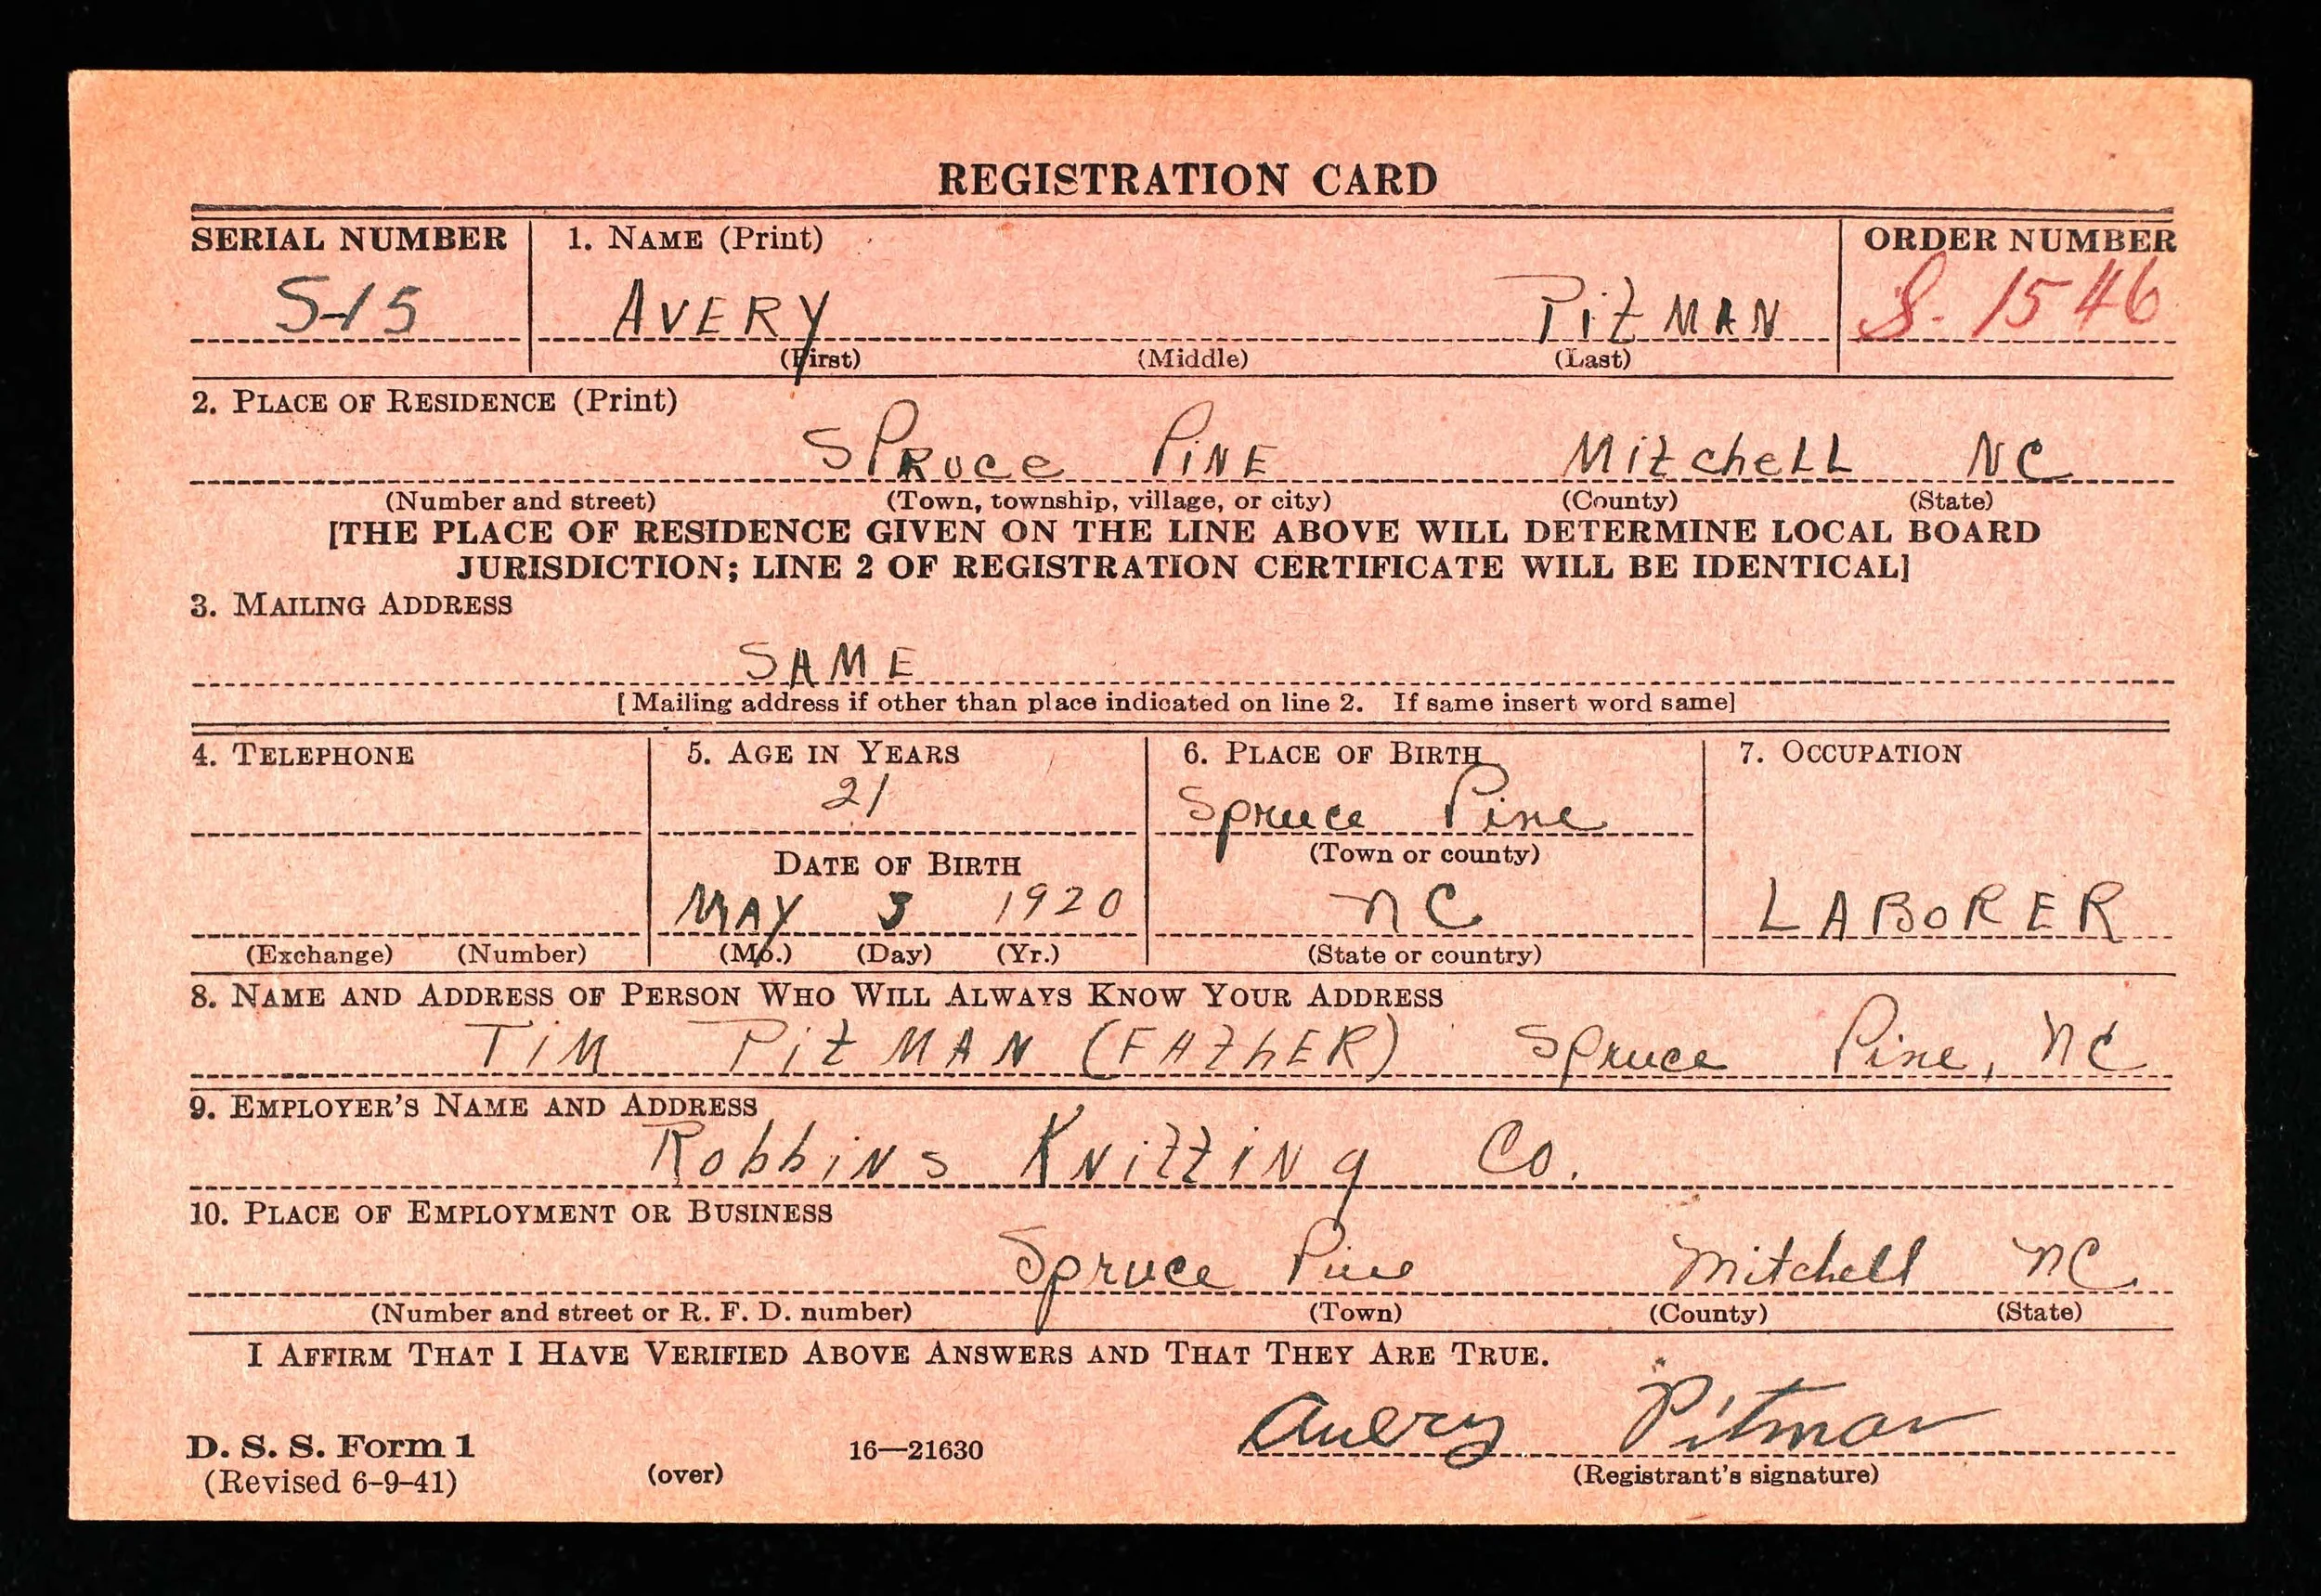 REGISTRATION CARD
SERIAL NUMBER 1. NAME (Print) ORDER NUMBER
S-15 AVERY PitMAN S. 1546
(First) (Middle) (Last)
2. PLACE OF RESIDENCE (Print)
SPRuce PiNE MitcheLL NC
(Number and street) (Town, township, village, or city) (County) (State)
[THE PLACE OF RESIDENCE GIVEN ON THE LINE ABOVE WILL DETERMINE LOCAL BOARD
JURISDICTION; LINE 2 OF REGISTRATION CERTIFICATE WILL BE IDENTICAL]
3. MAILING ADDRESS
SAME
[Mailing address if other than place indicated on line 2. If same insert word same]
4. TELEPHONE 5. AGE IN YEARS 6. PLACE OF BIRTH 7. OCCUPATION
21 Spruce Pine
(Town or county)
DATE OF BIRTH
MAY 3 1920 NC LABORER
(Exchange) (Number) (Mo.) (Day) (Yr.) (State or country)
8. NAME AND ADDRESS OF PERSON WHO WILL ALWAYS KNOW YOUR ADDRESS
TiM PitMAN (FAthER) Spruce Pine, NC
9. EMPLOYER'S NAME AND ADDRESS
RobbiNs KNittiNg Co.
10. PLACE OF EMPLOYMENT OR BUSINESS
Spruce Pine Mitchell NC
(Number and street or R. F. D. number) (Town) (County) (State)
I AFFIRM THAT I HAVE VERIFIED ABOVE ANSWERS AND THAT THEY ARE TRUE.
Avery Pitman
D. S. S. Form 1 16—21630
(Revised 6-9-41) (over) (Registrant's signature)